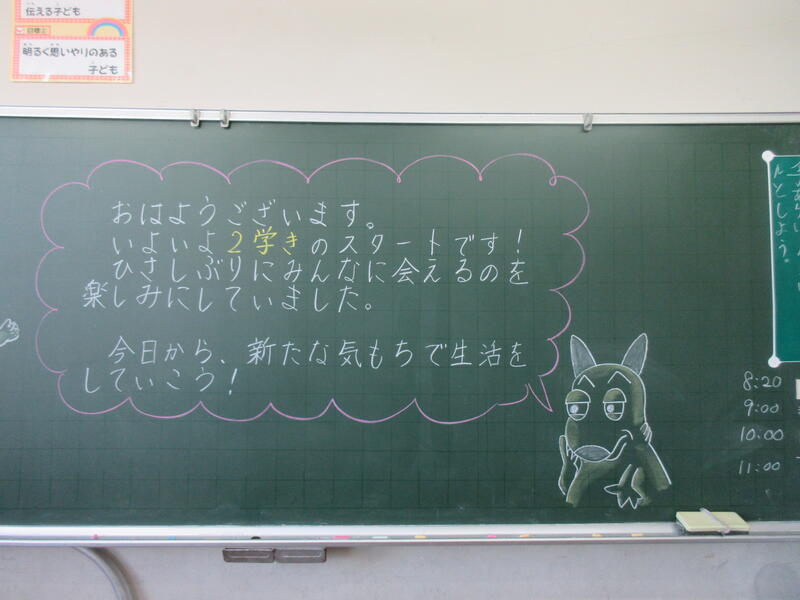 伝える子ども
目標2
明るく思いやりのある
子ども
おはようございます。
いよいよ2学きのスタートです！
ひさしぶりにみんなに会えるのを
楽しみにしていました。
今日から、新たな気もちで生活を
していこう！
んとしよう。
8:20
9:00
10:00
11:00